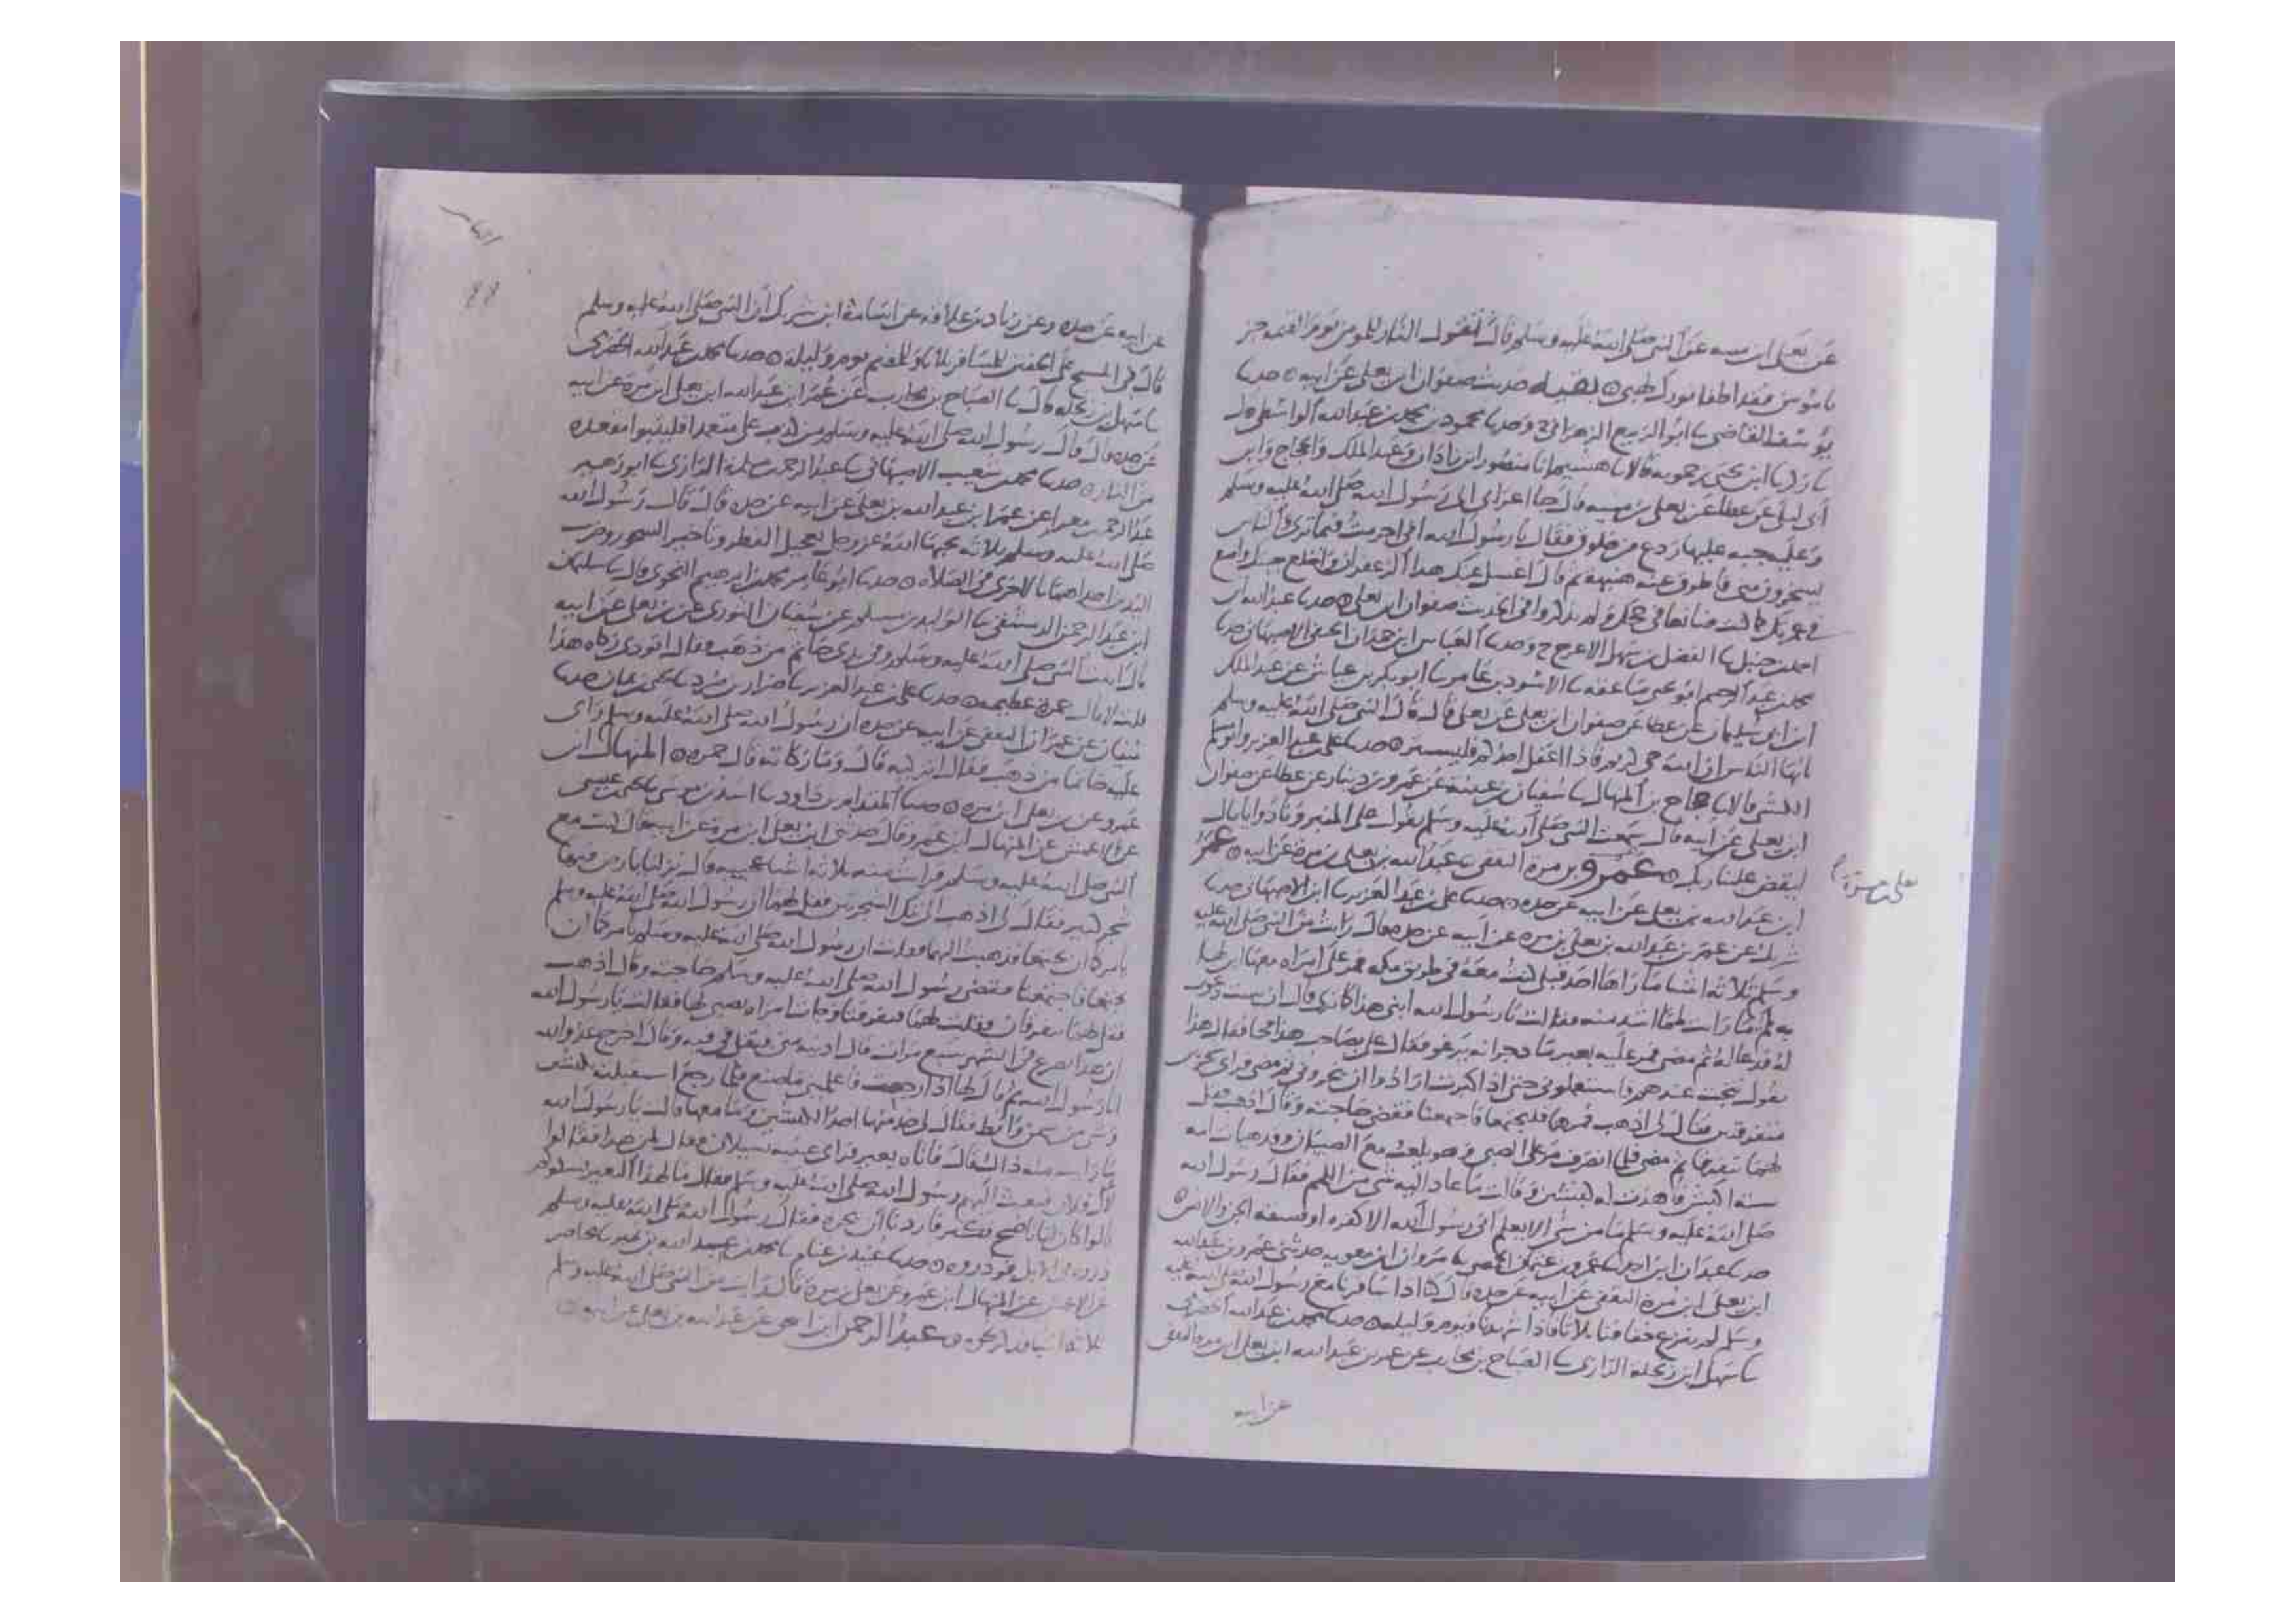 عن يعلى ابن منيه عن النبي صلى الله عليه وسلم قال تقول النار للمومن يوم القيمه جز
يا مومن فقد اطفا نورك لهبي ۞ بقيه حديث صفوان ابن يعلى عن ابيه ۞ حدثنا
يوسف القاضي ثنا ابو الربيع الزهراني ح وحدثنا محمود بن محمد بن عبد الله الواسطي
ثنا زكريا ابن يحيى زحمويه قالا ثنا هشيم انا منصور ابن زاذان وعبد الملك والحجاج وابن
ابي ليلى عن عطا عن يعلى بن منيه قال جا اعرابي الى رسول الله صلى الله عليه وسلم
وعليه جبه عليها ردع من خلوق فقال يا رسول الله اني احرمت فيما ترى والناس
يسخرون مني فاطرق عنه هنيهه ثم قال اغسل عنك هذا الزعفران واخلع جبتك واصنع
في عمرتك كما كنت صانعا في حجك ولم يذكروا في الحديث صفوان ابن يعلى ۞ حدثنا عبد الله ابن
احمد بن حنبل ثنا الفضل بن سهل الاعرج ح وحدثنا العباس ابن حمدان الحنفي الاصبهاني حدثنا
محمد بن عبد الرحيم ابو يحيى صاعقه ثنا الاسود بن عامر ثنا ابو بكر بن عياش عن عبد الملك
ابن ابي سليمان عن عطا عن صفوان ابن يعلى عن يعلى قال قال النبي صلى الله عليه وسلم
ايها الناس ان الله حي كريم فاذا اغتسل احدكم فليستتر ۞ حدثنا علي بن عبد العزيز وابو مسلم
الكشي قالا ثنا حجاج بن المنهال ثنا سفيان بن عيينه عن عمرو بن دينار عن عطا عن صفوان
ابن يعلى عن ابيه قال سمعت النبي صلى الله عليه وسلم يقول على المنبر ونادوا يا مال
ليقض علينا ربك ۞ عمرو بن مرة الثقفي عن عبد الله بن يعلى بن مره عن ابيه ۞ عمر
يعلى بن مرة
ابن عبد الله بن يعلى عن ابيه عن جده ۞ حدثنا علي بن عبد العزيز ثنا ابن الاصبهاني حدثنا
شريك عن عمر بن عبد الله بن يعلى بن مره عن ابيه عن جده قال رايت من النبي صلى الله عليه
وسلم ثلاثه اشيا ما راها احد قبلي كنت معه في طريق مكه فمر على امراه معها ابن لها
به لمم ما رايت لمما اشد منه فقالت يا رسول الله ابني هذا كما ترى قال ان شيت دعوت
له فدعا له ثم مضى فمر عليه بعير ماد جرانه يرغو فقال علي بصاحب هذا فجا فقال هذا
يقول نتجت عندهم فاستعملوني حتى اذا كبرت ارادوا ان ينحروني ثم مضى فراى شجرتين
متفرقتين فقال لي اذهب فمرهما فليجتمعا فاجتمعتا فقضى حاجته وقال اذهب فقل
لهما يتفرقا ثم مضى فلما انصرف مر على الصبي وهو يلعب مع الصبيان وقد هيات امه
سته اكبش فاهدت له كبشين وقالت ما عاد اليه شي من اللمم فقال رسول الله
صلى الله عليه وسلم ما من شي الا يعلم اني رسول الله الا كفره او فسقه الجن والانس ۞
حدثنا عبدان ابن احمد ثنا عمرو بن عثمان الحمصي ثنا مروان ابن معويه حدثني عمر بن عبد الله
ابن يعلى ابن مره الثقفي عن ابيه عن جده قال كنا اذا سافرنا مع رسول الله صلى الله عليه
وسلم لم ننزع خفافنا ثلاثا فاذا شهدنا فيوم وليله ۞ حدثنا محمد بن عبد الله الحضرمي
ثنا سهل ابن زنجله الرازي ثنا الصباح بن محارب عن عمر بن عبد الله ابن يعلى ابن مره الثقفي
عن ابيه
88
عن ابيه عن جده وعن زياد بن علاقه عن اسامة ابن شريك ان النبي صلى الله عليه وسلم
قال في المسح على الخفين للمسافر ثلاثا وللمقيم يوم وليله ۞ حدثنا محمد بن عبد الله الحضرمي
ثنا سهل بن زنجله قال ثنا الصباح بن محارب عن عمر ابن عبد الله ابن يعلى ابن مره عن ابيه
عن جده قال قال رسول الله صلى الله عليه وسلم من كذب علي متعمدا فليتبوا مقعده
من النار ۞ حدثنا محمد بن شعيب الاصبهاني ثنا عبد الرحمن بن سلمه الرازي ثنا ابو زهير
عبد الرحمن بن مغرا عن عمر ابن عبد الله بن يعلى عن ابيه عن جده قال قال رسول الله
صلى الله عليه وسلم ثلاثه يحبها الله عز وجل تعجيل الفطر وتاخير السحور وضرب
اليدين احداهما بالاخرى في الصلاه ۞ حدثنا ابو عامر محمد بن ابرهيم النحوي قال ثنا سليمن
ابن عبد الرحمن الدمشقي ثنا الوليد بن مسلم عن سفيان الثوري عن بن يعلى عن ابيه
قال اتيت النبي صلى الله عليه وسلم وفي يدي خاتم من ذهب فقال اتودي زكاه هذا
قلت لا قال جمره عظيمه ۞ حدثنا علي بن عبد العزيز ثنا ضرار بن صرد ثنا يحيى بن يمان حدثنا
سفيان عن عمران الثقفي عن ابيه عن جده ان رسول الله صلى الله عليه وسلم راى
عليه خاتما من ذهب فقال اتزكيه قال وما زكاته قال جمره ۞ المنهال ابن
عمرو عن يعلى ابن مره ۞ حدثنا المقدام بن داود ثنا اسد بن موسى ثنا يحيى بن عيسى
عن الاعمش عن المنهال ابن عمرو قال حدثني ابن يعلى ابن مره عن ابيه قال كنت مع
النبي صلى الله عليه وسلم فرايت منه ثلاثه اشيا عجيبه قال نزلنا بارض فيها
شجر كثير فقال لي اذهب الى تلك الشجرتين فقل لهما ان رسول الله صلى الله عليه وسلم
يامركما ان تجتمعا فذهبت اليهما فقلت ان رسول الله صلى الله عليه وسلم يامركما ان
تجتمعا فاجتمعتا فقضى رسول الله صلى الله عليه وسلم حاجته وقال اذهب
فقل لهما يتفرقان فقلت لهما فتفرقتا وجات امراه بصبي لها فقالت يا رسول الله
ان هذا يصرع في الشهر سبع مرات قال ادنيه مني فتفل في فيه وقال اخرج عدو الله
انا رسول الله ثم قال لها اذا رجعت فاعلميني ما صنع فلما رجع استقبلته بكبشين
وشي من سمن واقط فقال لي خذ منها احد الكبشين وما معها قالت يا رسول الله
ما رايت منه ذاك قال فاتاه بعير فراى عينيه تسيلان فقال لمن هذا فقالوا
لال فلان فبعث اليهم رسول الله صلى الله عليه وسلم فقال ما لهذا البعير يشكوكم
قالوا كان لنا ناضح فكبر فاردنا ان ننحره فقال رسول الله صلى الله عليه وسلم
ذروه في الابل فوذروه ۞ حدثنا عبيد بن غنام ثنا محمد بن عبد الله بن نمير ثنا محاضر
عن الاعمش عن المنهال ابن عمرو عن يعلى بن مره قال رايت من النبي صلى الله عليه وسلم
ثلاثه اشيا فذكر نحوه ۞ عبد الرحمن ابن اسحق عن عبد الله بن يعلى عن ابيه ۞